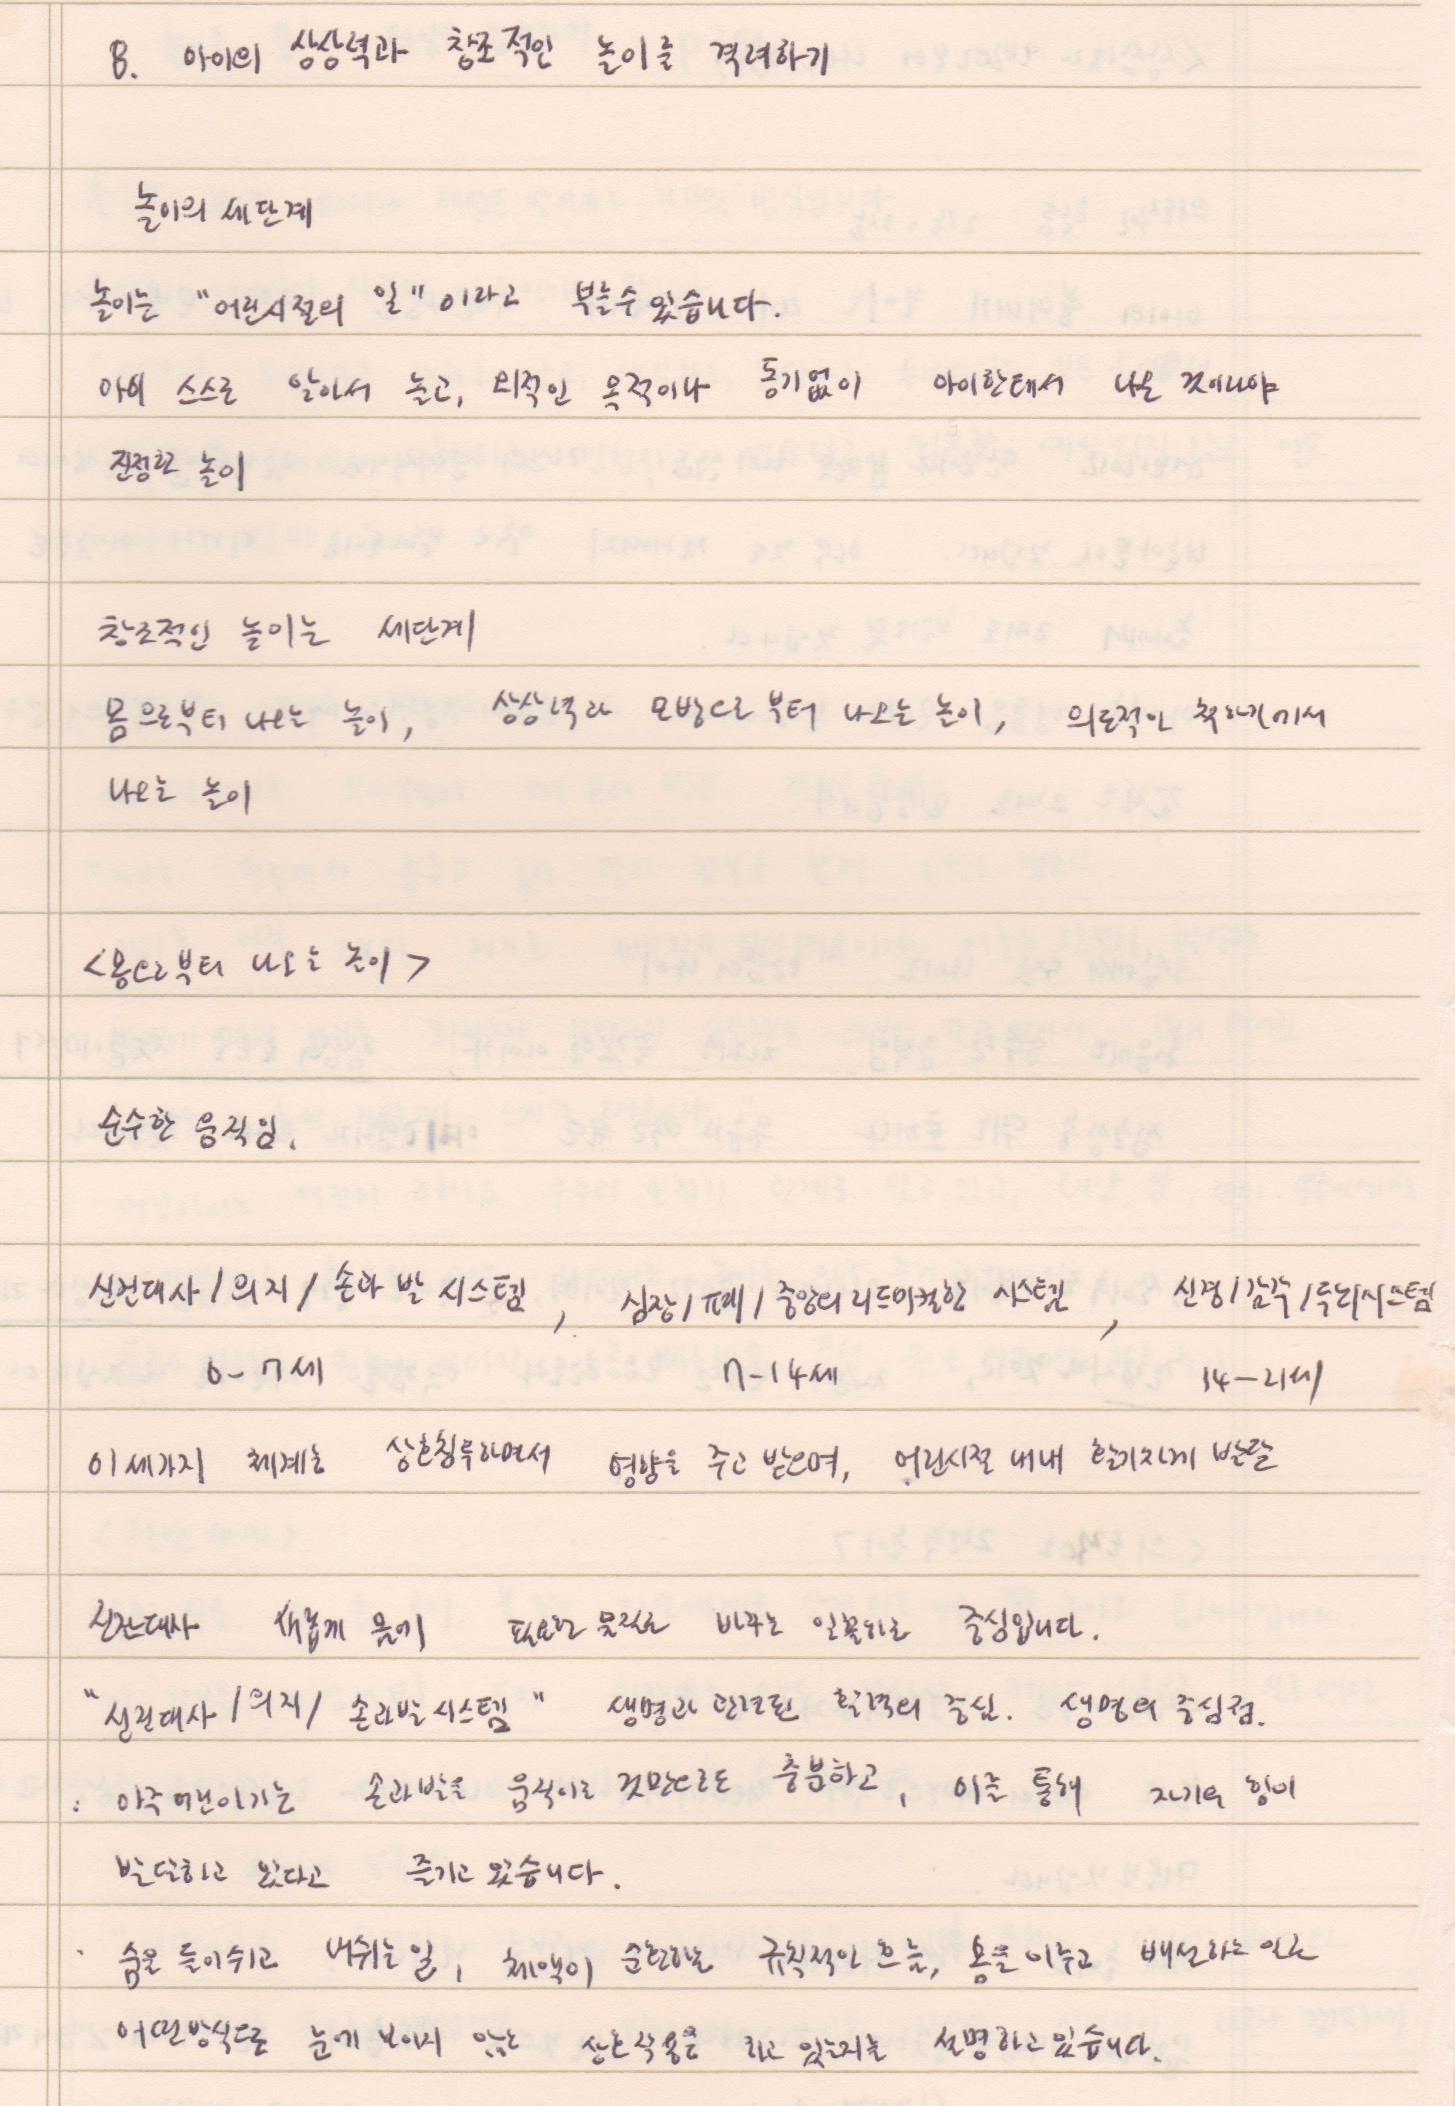 8. 아이의 상상력과 창조적인 놀이를 격려하기
놀이의 세단계
놀이는 "어린시절의 일"이라고 부를수 있습니다.
아이 스스로 알아서 놀고, 외적인 목적이나 동기없이 아이한테서 나온 것이어야
진정한 놀이
창조적인 놀이는 세단계
몸으로부터 나오는 놀이, 상상력과 모방으로부터 나오는 놀이, 의도적인 척하기에서
나오는 놀이
<몸으로부터 나오는 놀이>
순수한 움직임.
신진대사/의지/손과 발 시스템, 심장/폐/중앙의 리드미컬한 시스템, 신경/감각/두뇌시스템
0-7세 7-14세 14-21세
이 세가지 체계는 상호침투하면서 영향을 주고 받으며, 어린시절 내내 활기차게 발달
신진대사 새롭게 몸에 필요한 물질로 바꾸는 일꾼하는 중심입니다.
"신진대사/의지/손과발 시스템" 생명과 관련된 활력의 중심. 생명의 중심점.
: 아주 어린아기는 손과발을 움직이는 것만으로도 충분하고, 이를 통해 자기의 힘이
발달하고 있다고 즐기고 있습니다.
· 숨을 들이쉬고 내쉬는 일, 체액이 순환하는 규칙적인 흐름, 몸을 이루고 배설하는 일은
어떤방식으로 눈에 보이지 않는 상호작용을 하고 있는지를 설명하고 있습니다.